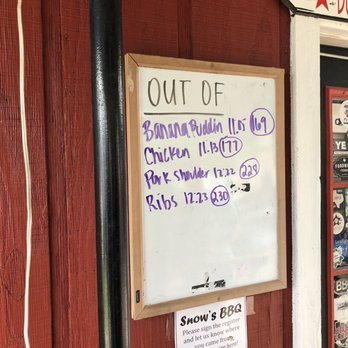 OUT OF
Banana Puddin 11.05 169
Chicken 11.13 177
Pork shoulder 12.22 229
Ribs 12:23 230
Snow's BBQ
Please sign the register
and let us know where
you came from
YE